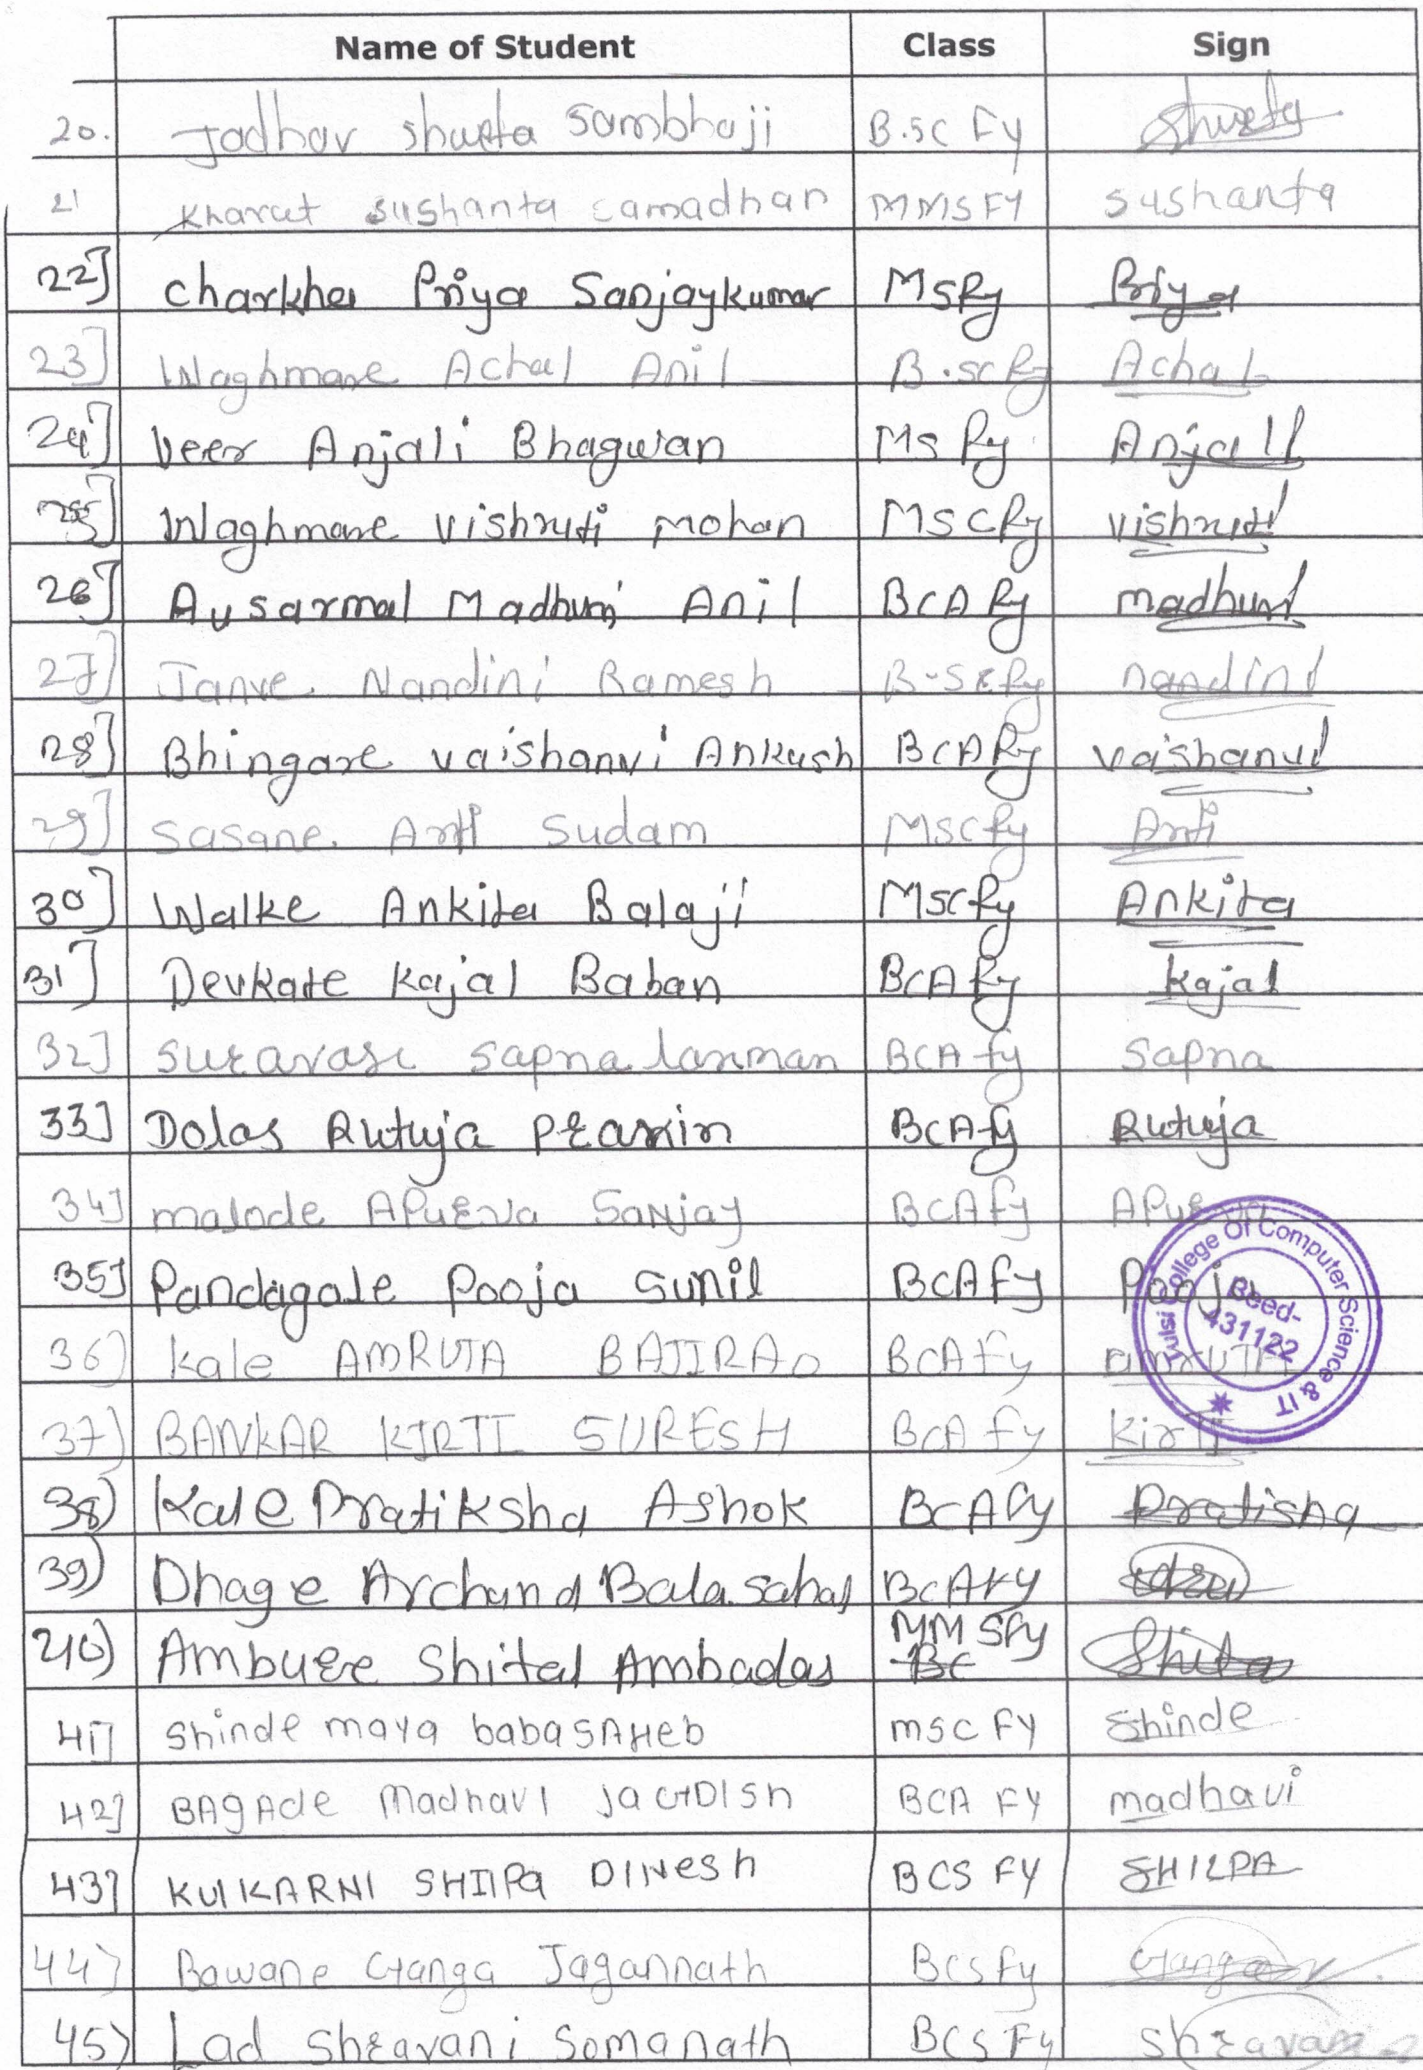 Name of Student Class Sign
20. Jadhav shweta Sambhaji B.SC Fy Shweta
21 Kharat sushanta samadhan MMS FY sushanta
22] Charkha Priya Sanjaykumar MSFy Priya
23] Waghmare Achal Anil B.scFy Achal
24] Veer Anjali Bhagwan Ms Fy Anjali
25] Waghmare vishruti Mohan MSCFy vishruti
26] Ausarmal Madhuri Anil BCA Fy madhuri
27] Janve Nandini Ramesh B.ScFy nandini
28] Bhingare vaishanvi Ankush BCAFy vaishanvi
29] Sasane. Arti Sudam MScfy Arti
30] Walke Ankita Balaji MScFy Ankita
31] Devkate Kajal Baban BCA Fy kajal
32] suravase sapna laxman BCA fy Sapna
33] Dolas Rutuja Pravin BCAfy Rutuja
34] malode APurva Sanjay BCAfy APurva
35] Pandagale Pooja Sunil BCAfy Pooja
36) kale AMRUTA BAJIRAO BCAfy AMRUTA
37) BANKAR KIRTI SURESH BCA fy KirTI
38) Kale Pratiksha Ashok BCAFy Pratisha
39) Dhage Archana Balasahab BCAFy
40) Ambure Shital Ambadas MMSFy Shital
BC
41] Shinde maya babaSAHeb mSC FY Shinde
42] BAgAde Madhavi JaGDISh BCA FY madhavi
43] KulKARNI SHIlPa DINesh BCS FY SHILPA
44) Bawane Ganga Jagannath BCSfy Ganga
45) Lad Shravani Somanath BCSFy Shravani
Tulsi College Of Computer Science & IT
Beed-
431122